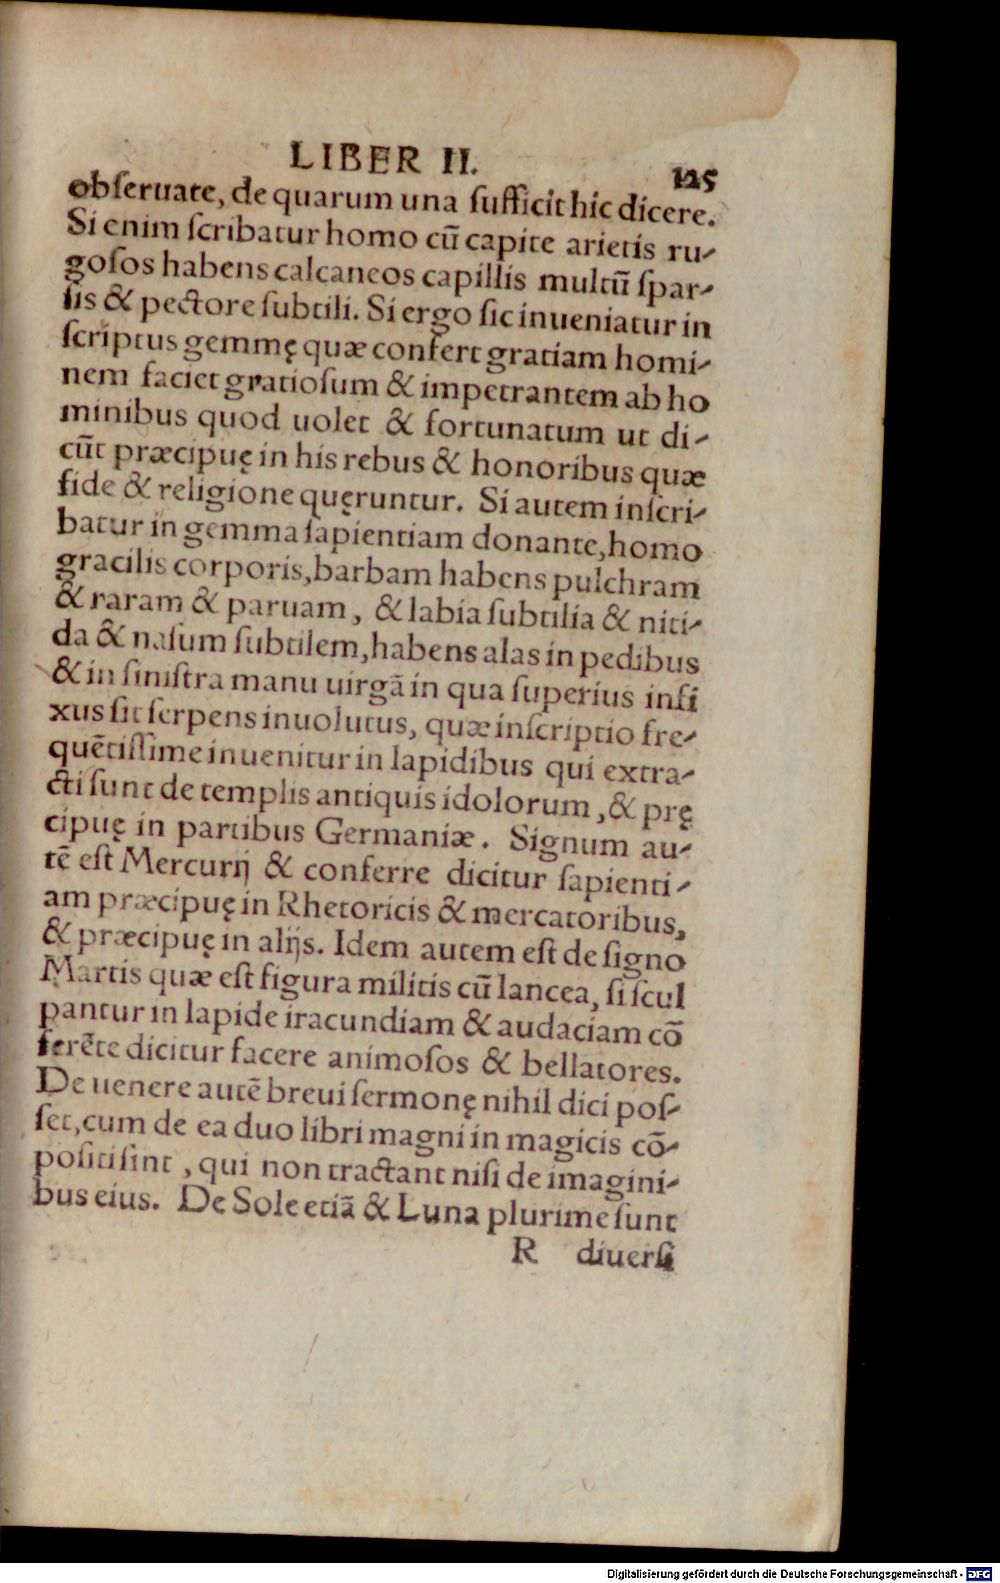 LIBER II. 125
obſeruate, de quarum una ſufficit hic dicere.
Si enim ſcribatur homo cū capite arietis ru-
goſos habens calcaneos capillis multū ſpar-
ſis & pectore ſubtili. Si ergo ſic inueniatur in
ſcriptus gemmę quæ confert gratiam homi-
nem faciet gratioſum & impetrantem ab ho
minibus quod uolet & fortunatum ut di-
cūt præcipuę in his rebus & honoribus quæ
fide & religione quęruntur. Si autem inſcri-
batur in gemma ſapientiam donante, homo
gracilis corporis, barbam habens pulchram
& raram & paruam, & labia ſubtilia & niti-
da & naſum ſubtilem, habens alas in pedibus
& in ſiniſtra manu uirgā in qua ſuperius infi
xus ſit ſerpens inuolutus, quæ inſcriptio fre-
quētiſſime inuenitur in lapidibus qui extra-
cti ſunt de templis antiquis idolorum, & prę
cipuę in partibus Germaniæ. Signum au-
tē eſt Mercurij & conferre dicitur ſapienti-
am præcipuę in Rhetoricis & mercatoribus,
& præcipuę in alijs. Idem autem eſt de ſigno
Martis quæ eſt figura militis cū lancea, ſi ſcul
pantur in lapide iracundiam & audaciam cō
ferēte dicitur facere animoſos & bellatores.
De uenere autē breui ſermonę nihil dici poſ-
ſet, cum de ea duo libri magni in magicis cō-
poſiti ſint, qui non tractant niſi de imagini-
bus eius. De Sole etiā & Luna plurime ſunt
R diuerſi
Digitalisierung gefördert durch die Deutsche Forschungsgemeinschaft - DFG